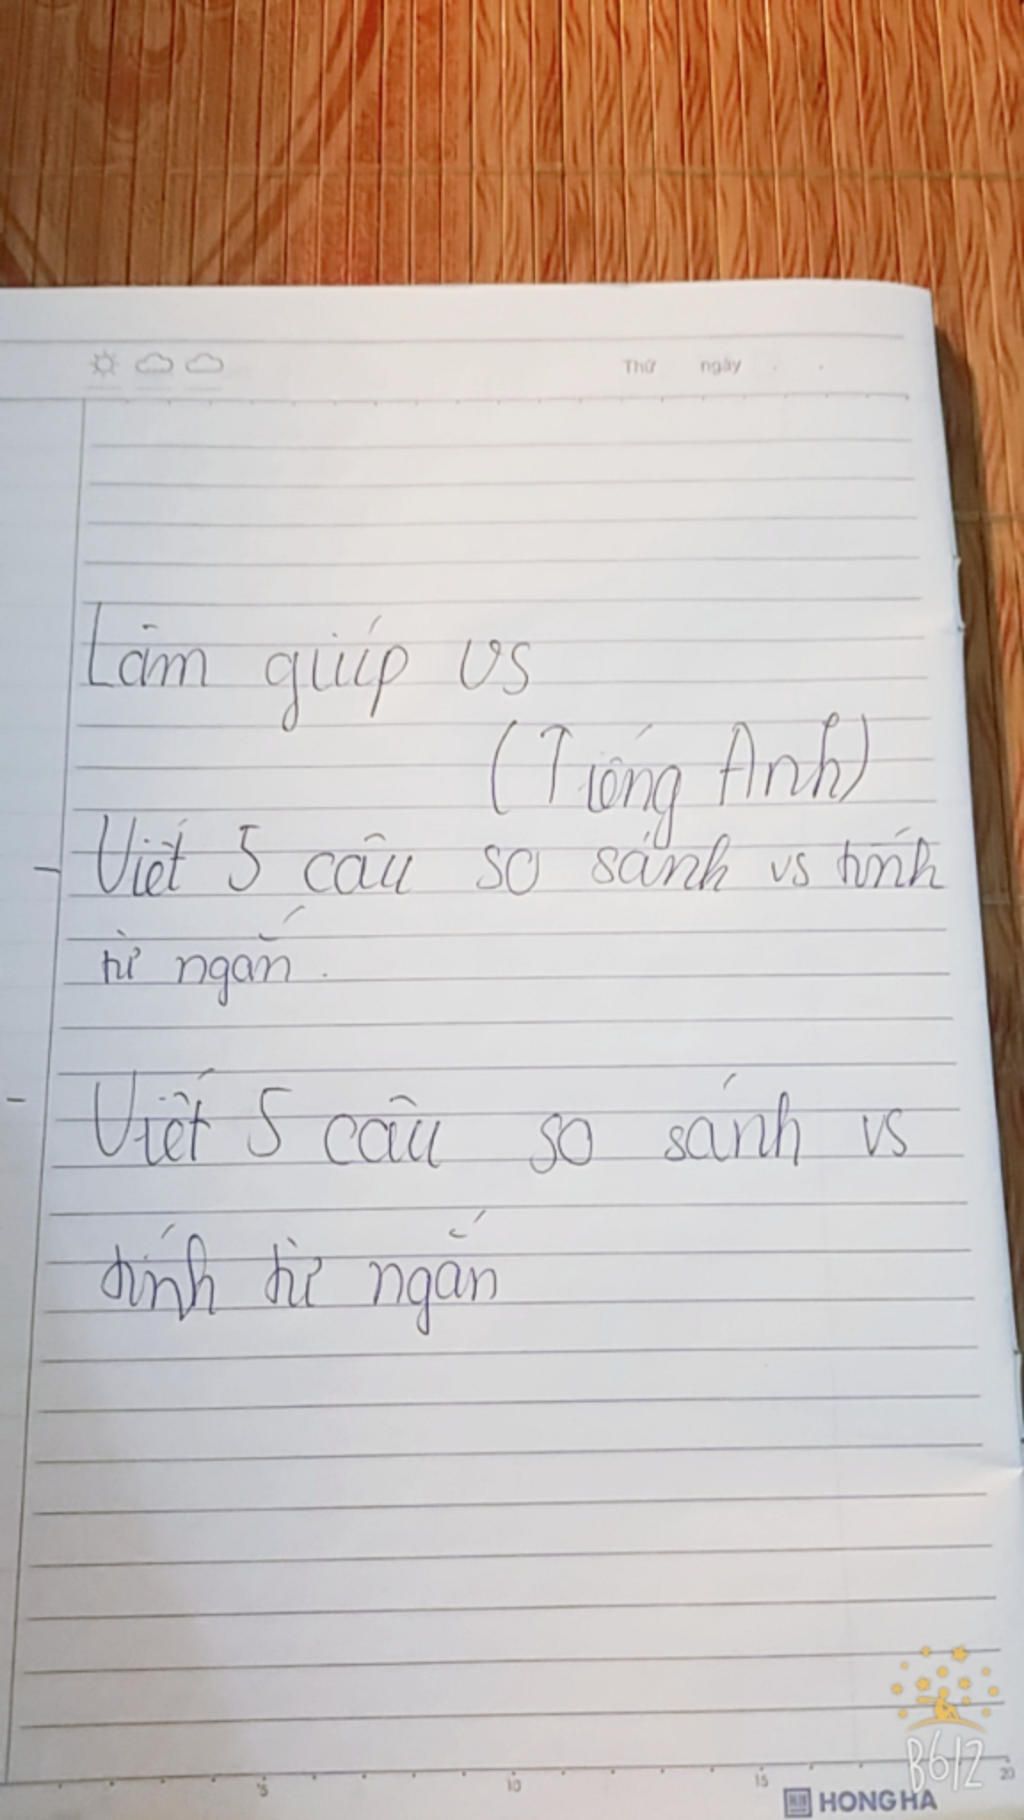 Thứ ngày
Làm giúp vs
(Tiếng Anh)
- Viết 5 câu so sánh vs tính
từ ngắn.
- Viết 5 câu so sánh vs
tính từ ngắn
5 10 15 20
HONG HA
B612